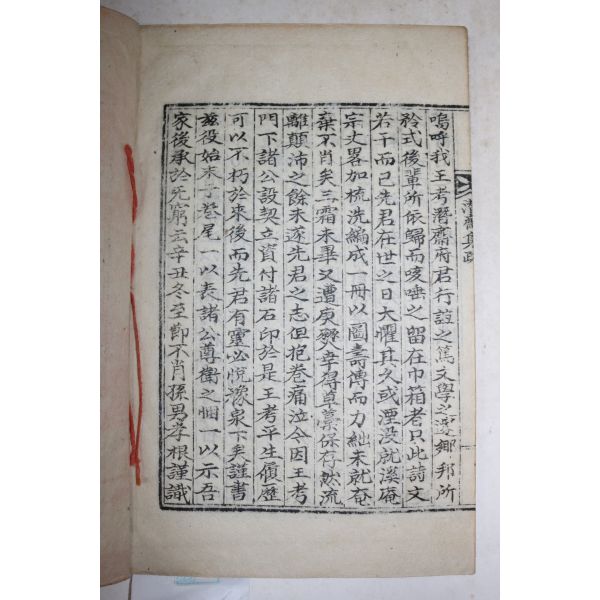 嗚呼我王考潛齋府君行誼之篤文學之邃鄉邦所
矜式後輩所依歸而咳唾之留在巾箱者只此詩文
若干而已先君在世之日大懼其久或湮没就溪庵
宗丈畧加梳洗編成一冊以圖壽傳而力絀未就奄
棄不肖矣三霜未畢又遭庚變幸得草藁保存然流
離顛沛之餘未遂先君之志但抱卷痛泣今因王考
門下諸公設契立資付諸石印於是王考平生履歷
可以不朽於來後而先君有靈必悅豫泉下矣謹書
玆役始末于卷尾一以表諸公尊衛之悃一以示吾
家後承於无窮云辛丑冬至節不肖孫男孝根謹識
潛齋集跋